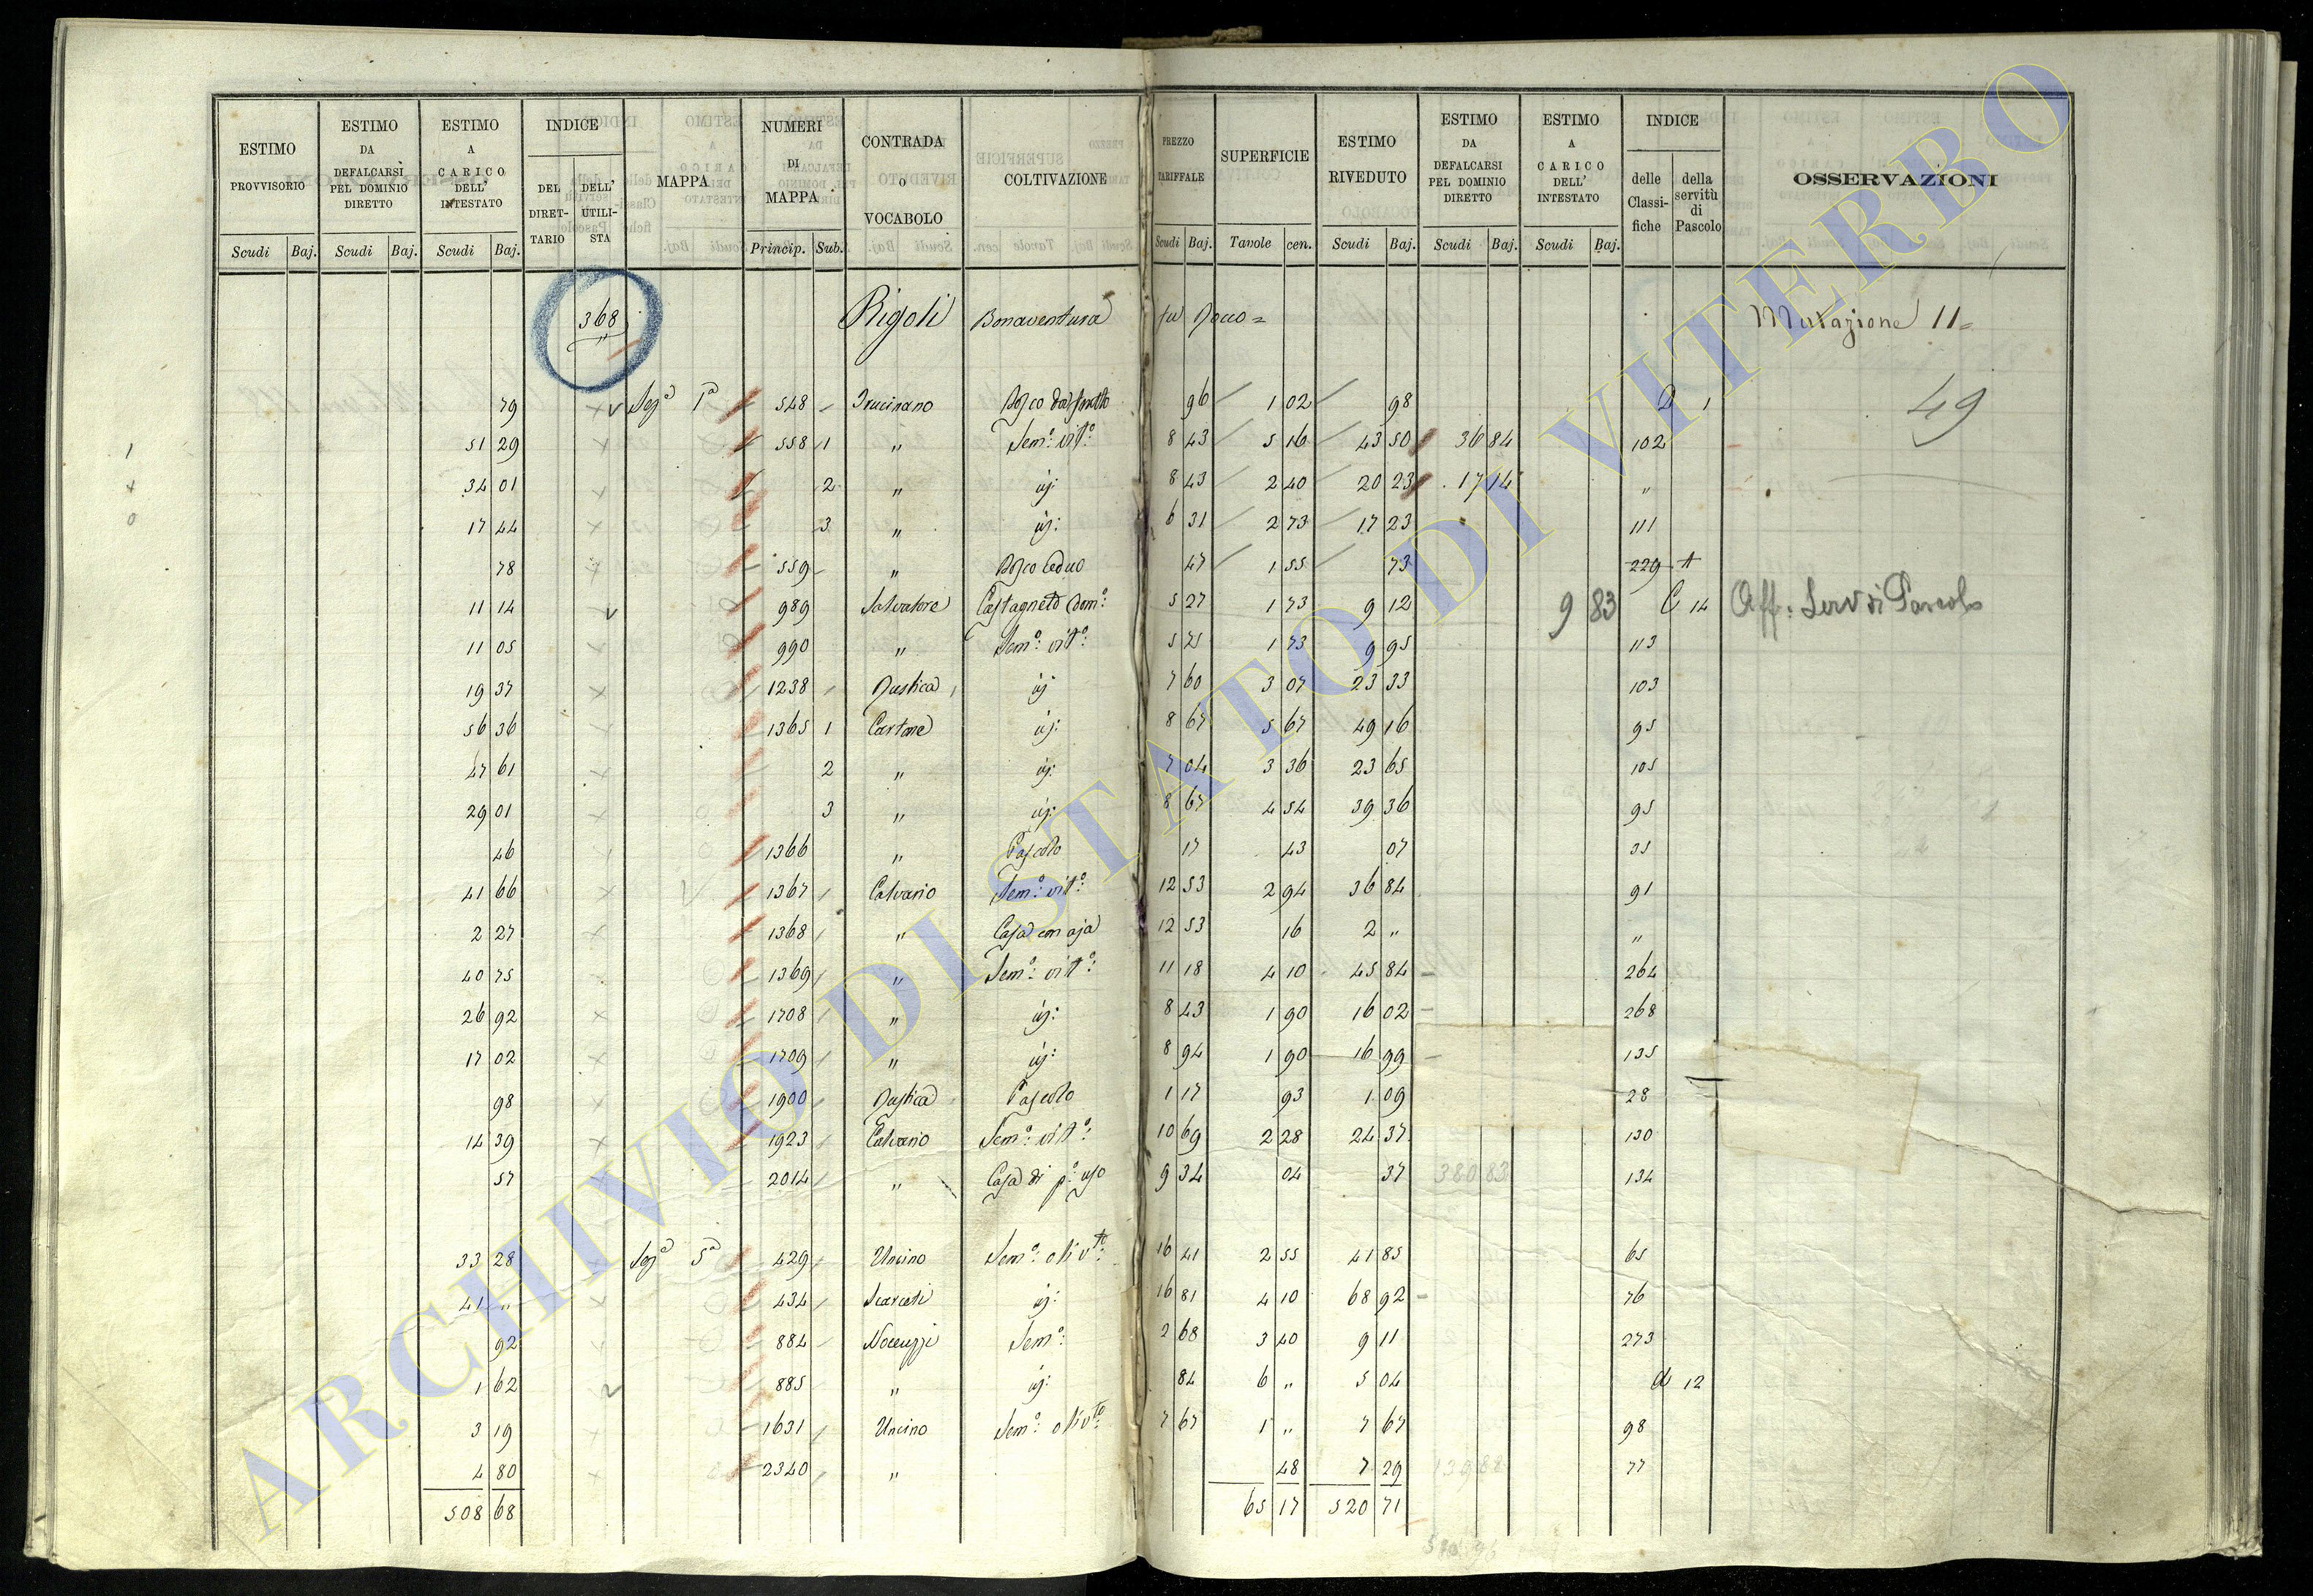 ESTIMO PROVVISORIO | ESTIMO DA DEFALCARSI PEL DOMINIO DIRETTO | ESTIMO A CARICO DELL' INTESTATO | INDICE DEL DIRETTARIO | DELL' UTILISTA | MAPPA | NUMERI DI MAPPA | CONTRADA O VOCABOLO | COLTIVAZIONE | PREZZO TARIFFALE | SUPERFICIE | ESTIMO RIVEDUTO | ESTIMO DA DEFALCARSI PEL DOMINIO DIRETTO | ESTIMO A CARICO DELL' INTESTATO | INDICE delle Classifiche | della servitù di Pascolo | OSSERVAZIONI
Scudi Baj. | Scudi Baj. | Scudi Baj. | Princip. Sub. | Scudi Baj. | Tavole cen. | Scudi Baj. | Scudi Baj. | Scudi Baj.
368 Rigoli Bonaventura fu Rocco = Mutazione 11=
79 Sez.ª 1ª 548 98 1 02 96 D 1 49
51 29 558 1 " Sem.º vit.º 8 43 5 16 43 50 36 84 102
34 01 2 " id: 8 43 2 40 20 23 17 14 "
17 44 3 " id: 6 31 2 73 17 23 111
78 559 " Bosco Ceduo 47 1 55 73 229
11 14 989 Salvatore Castagneto dom.º 5 27 1 73 9 12 9 83 C 14 Aff: Serv di Pascolo
11 05 990 " Sem.º vit.º 5 75 1 73 9 95 113
19 37 1238 Rustica id 7 60 3 07 23 33 103
56 36 1365 1 Cartone id: 8 67 5 67 49 16 95
47 61 2 " id: 7 04 3 36 23 65 105
29 01 3 " id: 8 67 4 54 39 36 95
46 1366 " Pascolo 17 43 07 35
41 66 1367 Calvario Sem.º vit.º 12 53 2 94 36 84 91
2 27 1368 " Casa con aja 12 53 16 2 " "
40 75 1369 " Sem.º vit.º 11 18 4 10 45 84 264
26 92 1708 " id: 8 43 1 90 16 02 268
17 02 1709 " id: 8 94 1 90 16 99 135
98 1900 Rustica Pascolo 1 17 93 1 09 28
14 39 1923 Calvario Sem.º vit.º 10 69 2 28 24 37 130
57 2014 " Casa di p.º uso 9 34 04 37 380 83 134
33 28 Sez.ª 5ª 429 Uncino Sem.º oliv.to 16 41 2 55 41 85 65
41 " 434 Scarceti id: 16 81 4 10 68 92 76
92 884 Nocenzzi Sem.º 2 68 3 40 9 11 273
1 62 885 " id: 84 6 " 5 04 12
3 19 1631 Uncino Sem.º oliv.to 7 67 1 " 7 67 98
4 80 2340 " 48 7 29 139 88 77
508 68 65 17 520 71
ARCHIVIO DI STATO DI VITERBO